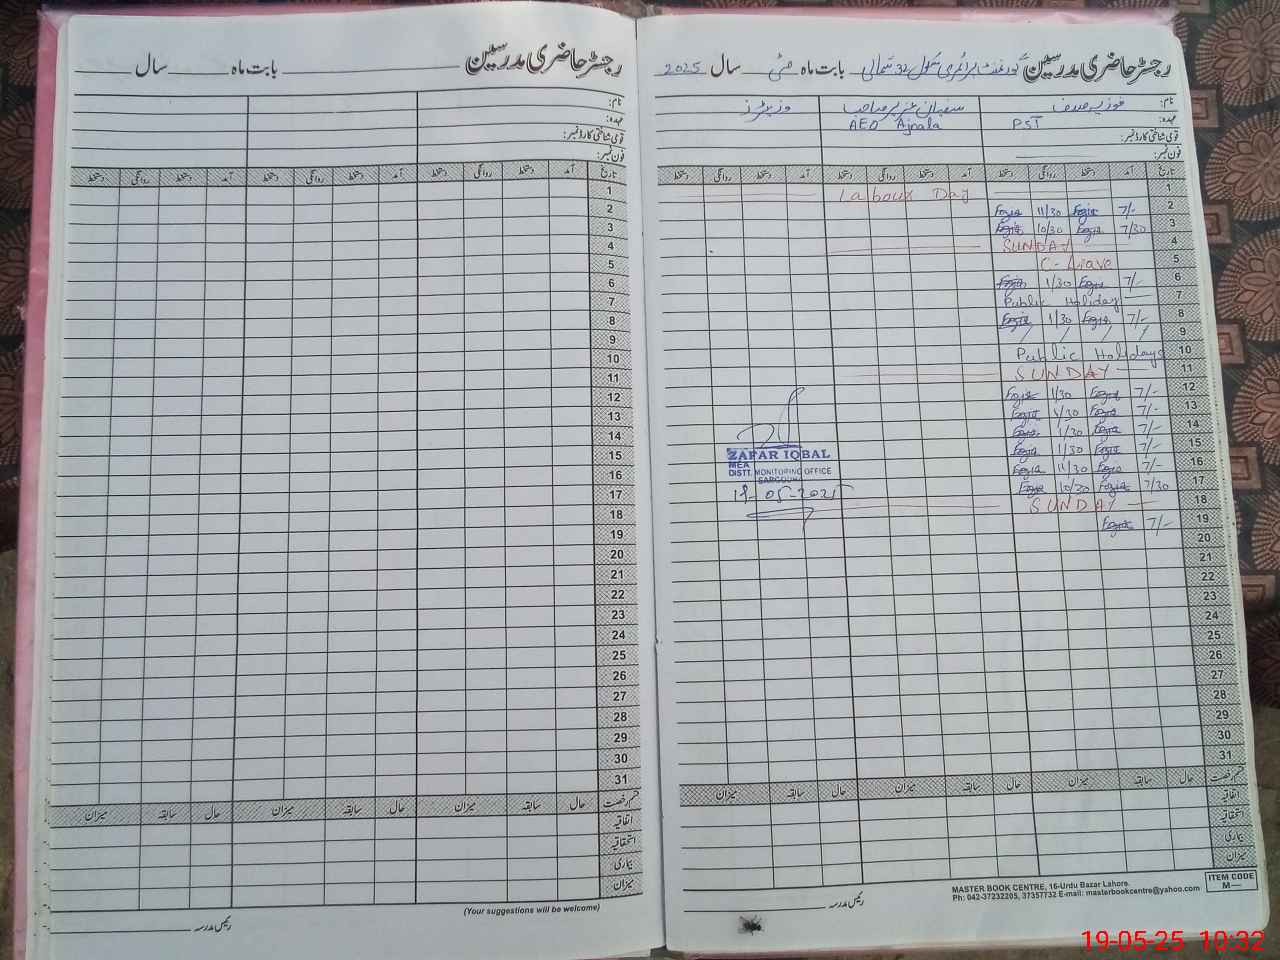 رجسٹر حاضری مدرسین گورنمنٹ پرائمری سکول 32 شمالی بابت ماہ مئی سال 2025
نام: فوزیہ صدف سفیان عزیز صاحب وزیٹرز
عہدہ: PST AEO Ajnala
قومی شناختی کارڈ نمبر:
فون نمبر:
تاریخ آمد دستخط روانگی دستخط آمد دستخط روانگی دستخط آمد دستخط روانگی دستخط
1 Labour Day
2 7/- Fozia 11/30 Fozia
3 7/30 Fozia 10/30 Fozia
4 SUNDAY
5 C-Leave
6 7/- Fozia 1/30 Fozia
7 Public Holiday
8 7/- Fozia 1/30 Fozia
9
10 Public Holidays
11 SUNDAY
12 7/- Fozia 1/30 Fozia
13 7/- Fozia 1/30 Fozia
14 7/- Fozia 1/30 Fozia
15 7/- Fozia 1/30 Fozia
16 7/- Fozia 11/30 Fozia
17 7/30 Fozia 10/30 Fozia
18 SUNDAY
19 7/- Fozia
20
21
22
23
24
25
26
27
28
29
30
31
ZAFAR IQBAL
MEA
DISTT. MONITORING OFFICE
SARGODHA
19-05-2025
قسم رخصت حال سابقہ میزان حال سابقہ میزان حال سابقہ میزان
اتفاقیہ
استحقاقیہ
بیماری
میزان
رئیس مدرسہ
MASTER BOOK CENTRE, 16-Urdu Bazar Lahore.
Ph: 042-37232205, 37357732 E-mail: masterbookcentre@yahoo.com
ITEM CODE
M—
رجسٹر حاضری مدرسین بابت ماہ سال
نام:
عہدہ:
قومی شناختی کارڈ نمبر:
فون نمبر:
تاریخ آمد دستخط روانگی دستخط آمد دستخط روانگی دستخط آمد دستخط روانگی دستخط
1
2
3
4
5
6
7
8
9
10
11
12
13
14
15
16
17
18
19
20
21
22
23
24
25
26
27
28
29
30
31
قسم رخصت حال سابقہ میزان حال سابقہ میزان حال سابقہ میزان
اتفاقیہ
استحقاقیہ
بیماری
میزان
(Your suggestions will be welcome)
رئیس مدرسہ
19-05-25 10:32